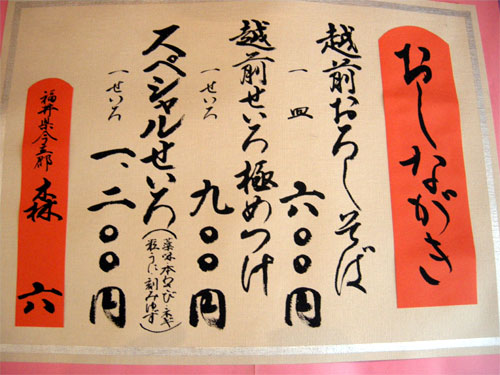 おしながき
越前おろしそば
一皿 六〇〇円
越前せいろ極めつけ
一せいろ 九〇〇円
スペシャルせいろ(薬味本わび・ネギ
粒うに・刻みゆず)
一せいろ 一、二〇〇円
福井県今立郡 森六